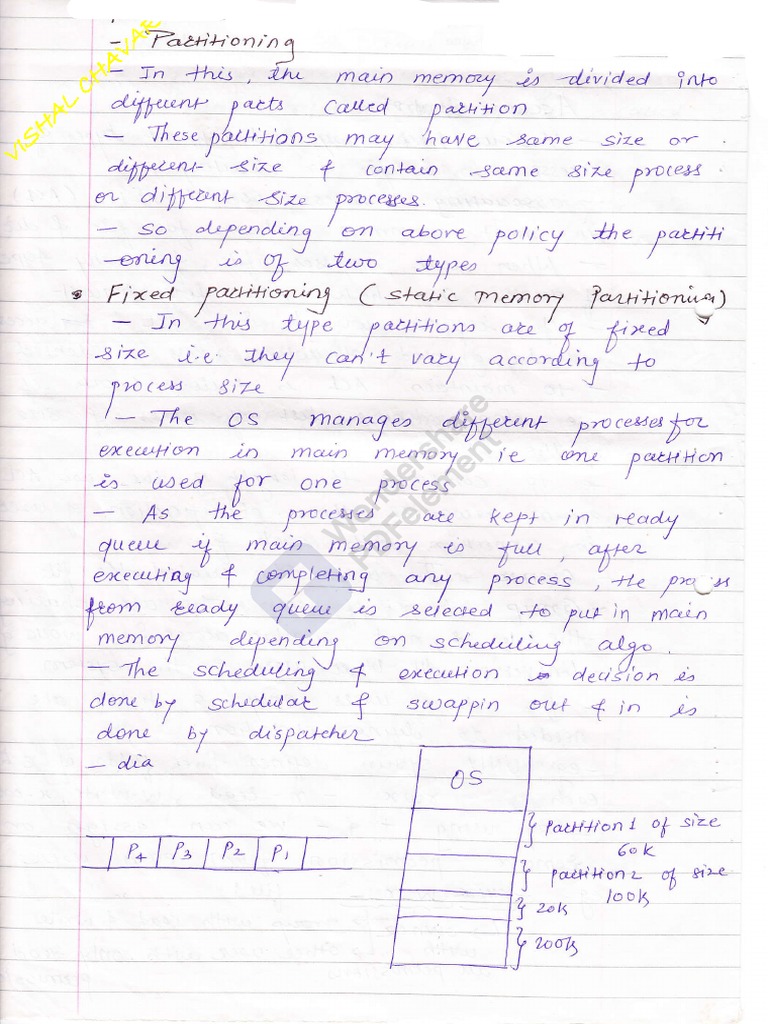 VISHAL CHAVAR
- Partitioning
- In this, the main memory is divided into
different parts called partition
- These partitions may have same size or
different size & contain same size process
or different size processes.
- So depending on above policy the partiti
-oning is of two types
• Fixed partitioning (static memory Partitioning)
- In this type partitions are of fixed
size i.e. they can't vary according to
process size
- The OS manages different processes for
execution in main memory ie one partition
is used for one process
- As the processes are kept in ready
queue if main memory is full, after
executing & completing any process, the process
from ready queue is selected to put in main
memory depending on scheduling algo.
- The scheduling & execution decision is
done by schedular & swappin out & in is
done by dispatcher
- dia
OS
} partition 1 of size
60K
P4 P3 P2 P1
} partition 2 of size
100K
} 20K
} 200K
Wondershare
PDFelement